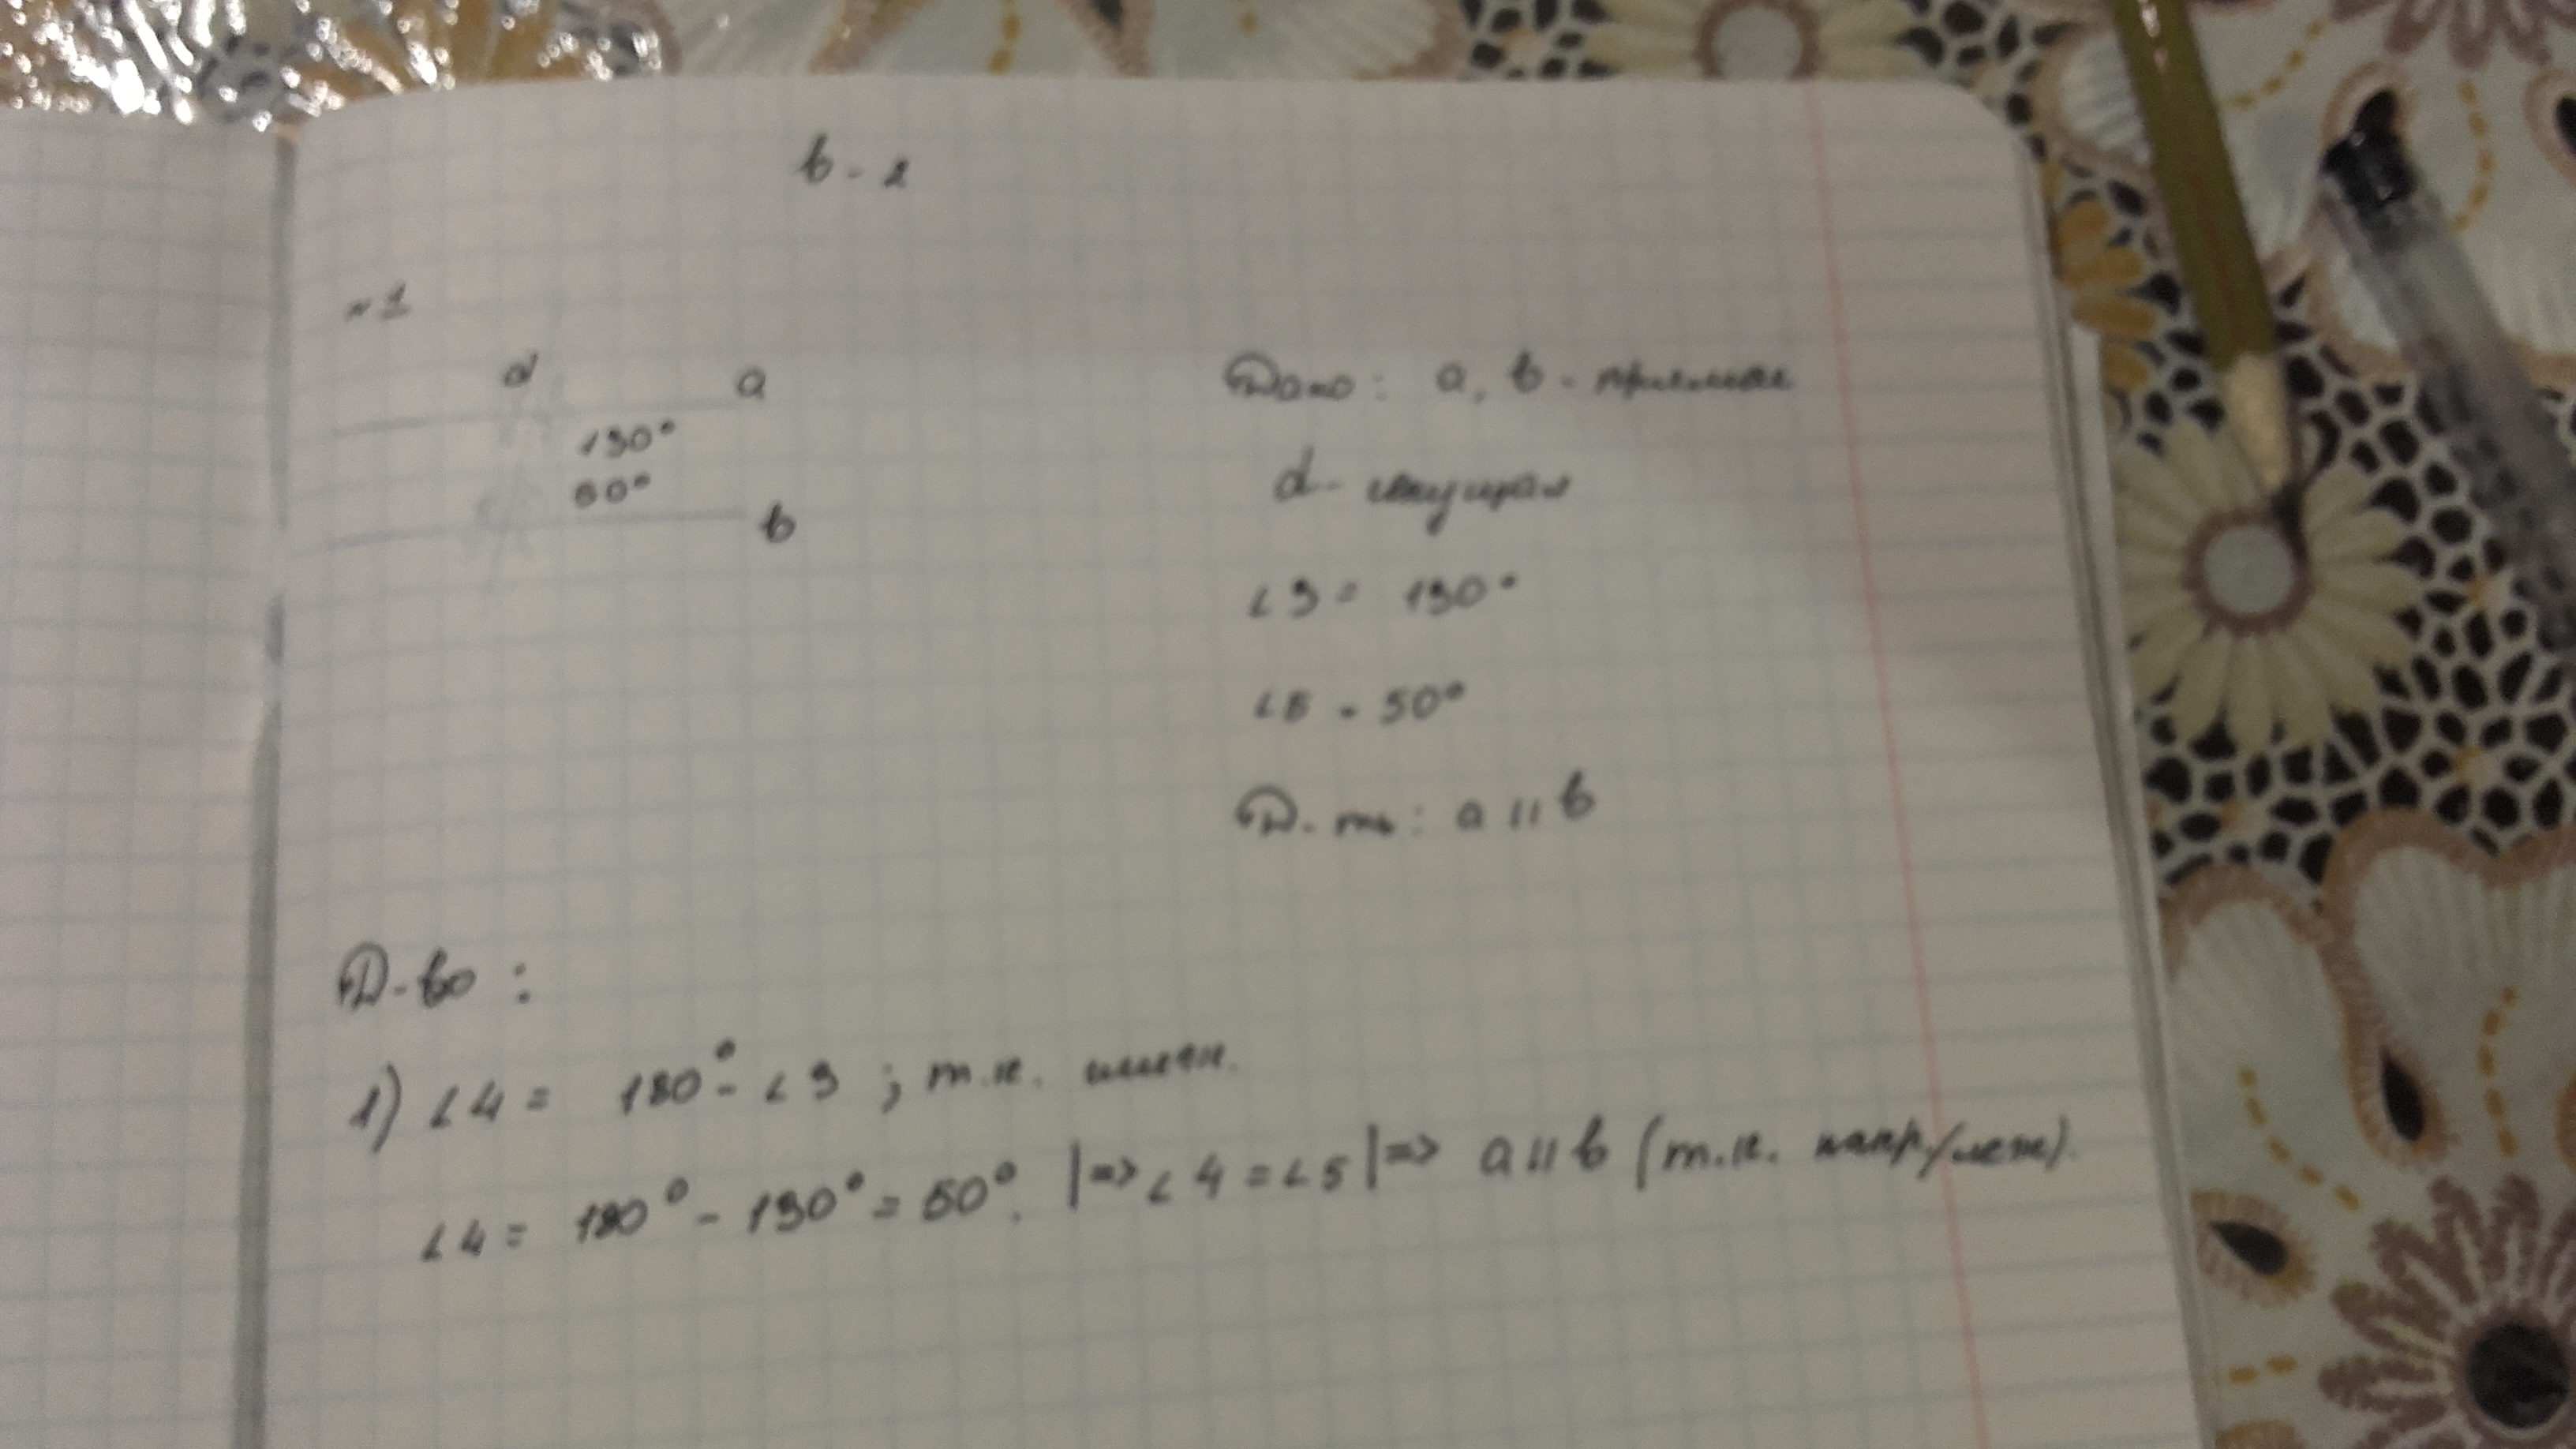 В-2
№1
d a
130°
50°
b
Дано: a, b - прямые
d - секущая
∠3 = 130°
∠5 = 50°
Д-ть: a || b
Д-во:
1) ∠4 = 180° - ∠3 ; т.к. смежн.
∠4 = 180° - 130° = 50°. |=> ∠4 = ∠5 |=> a || b (т.к. накр/леж).